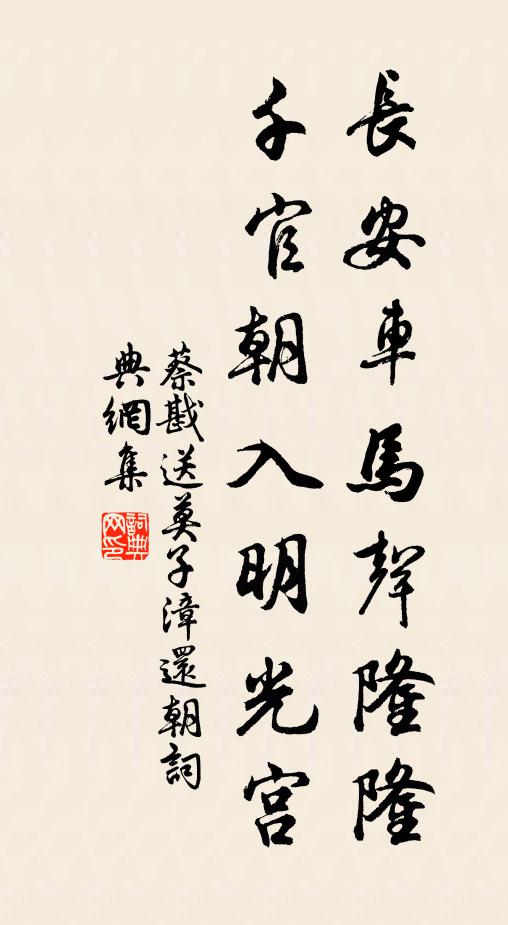 長安車馬聲隆隆
千官朝入明光宮
蔡戡送莫子漳還朝詞
典網集
詞典
网印